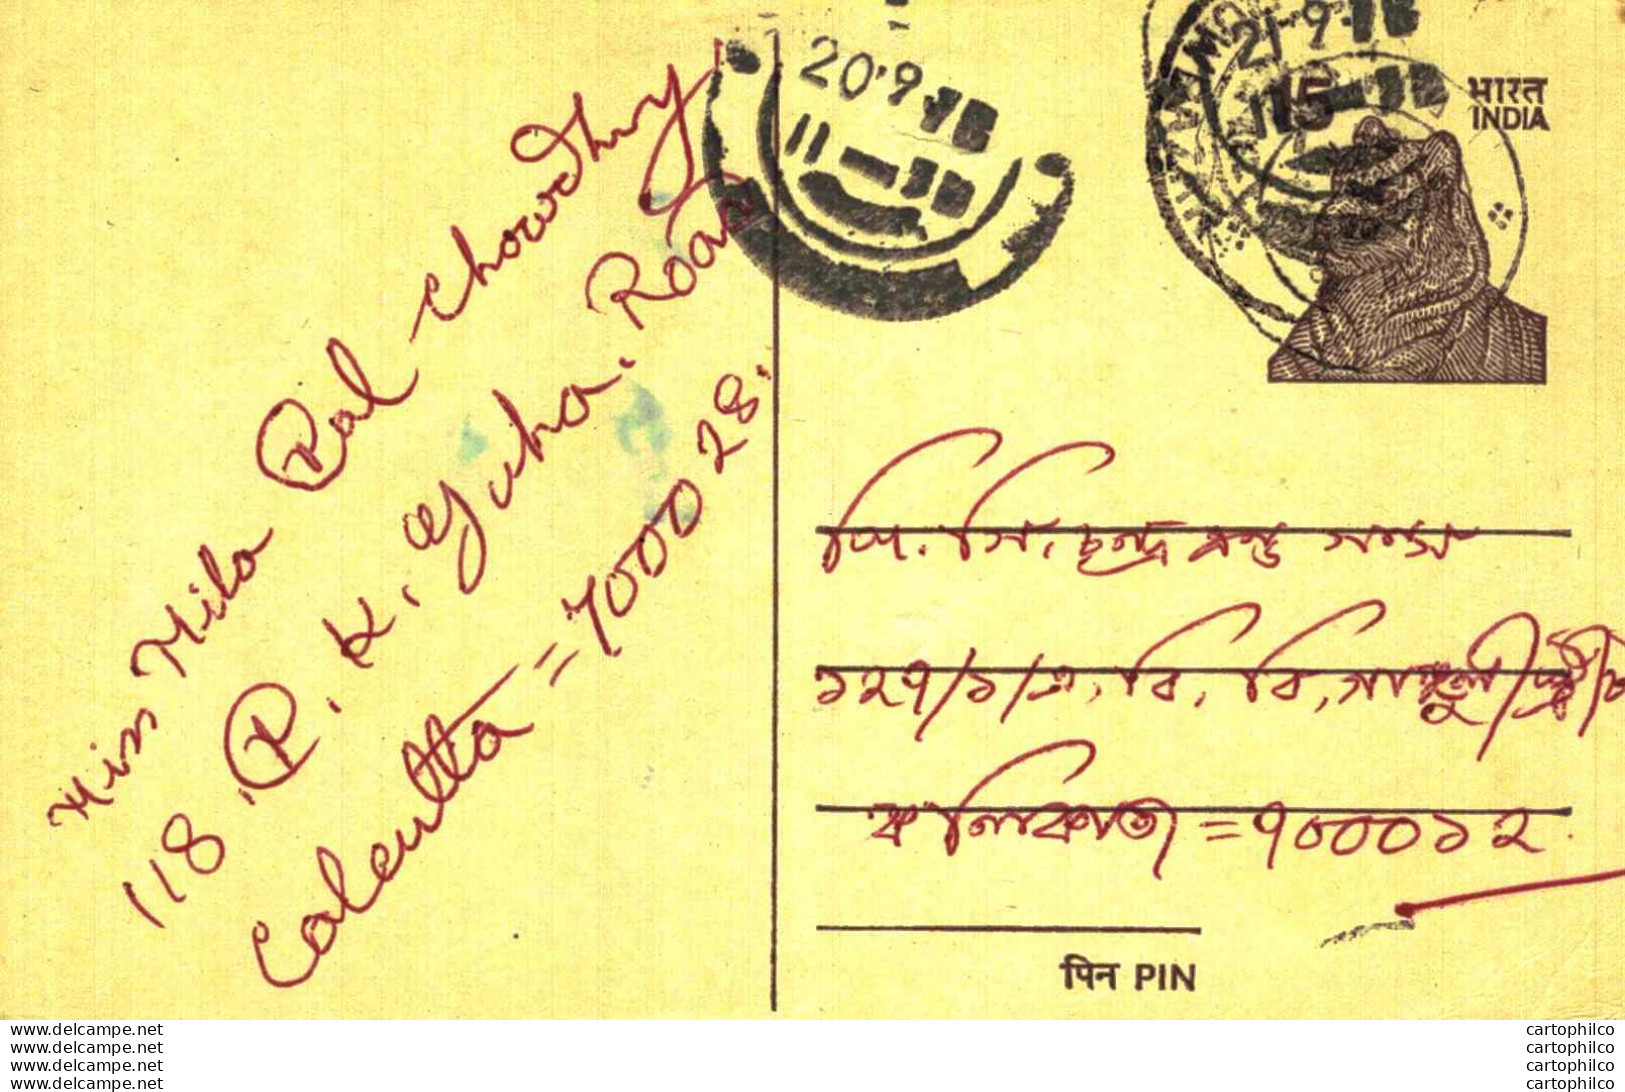 Miss Mila Pal Chowdhury
118. P. K. Guha. Road
Calcutta = 700028.
20.9.7
21-9
15
भारत
INDIA
পি. সি. চন্দ্র এন্ড সন্স
১২৭/১/এ, বি, বি, গাঙ্গুলী
কলিকাতা = ৭০০০১২.
पिन PIN
www.delcampe.net
www.delcampe.net
www.delcampe.net
www.delcampe.net
cartophilco
cartophilco
cartophilco
cartophilco